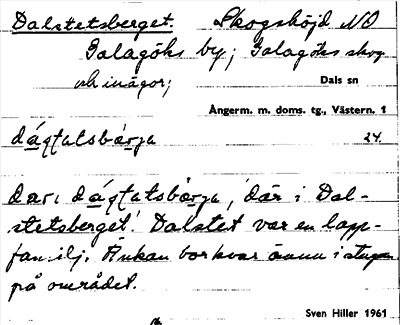 Dalstetsberget. Skogshöjd NO
Galagöks by; Galagöks skog
och inägor;
Dals sn
Ångerm. m. doms. tg., Västern. 1
24.
där i Dal-
stetsberget! Dalstet var en lapp-
familj. Änkan bor kvar ännu i stugan
på området.
Sven Hiller 1961